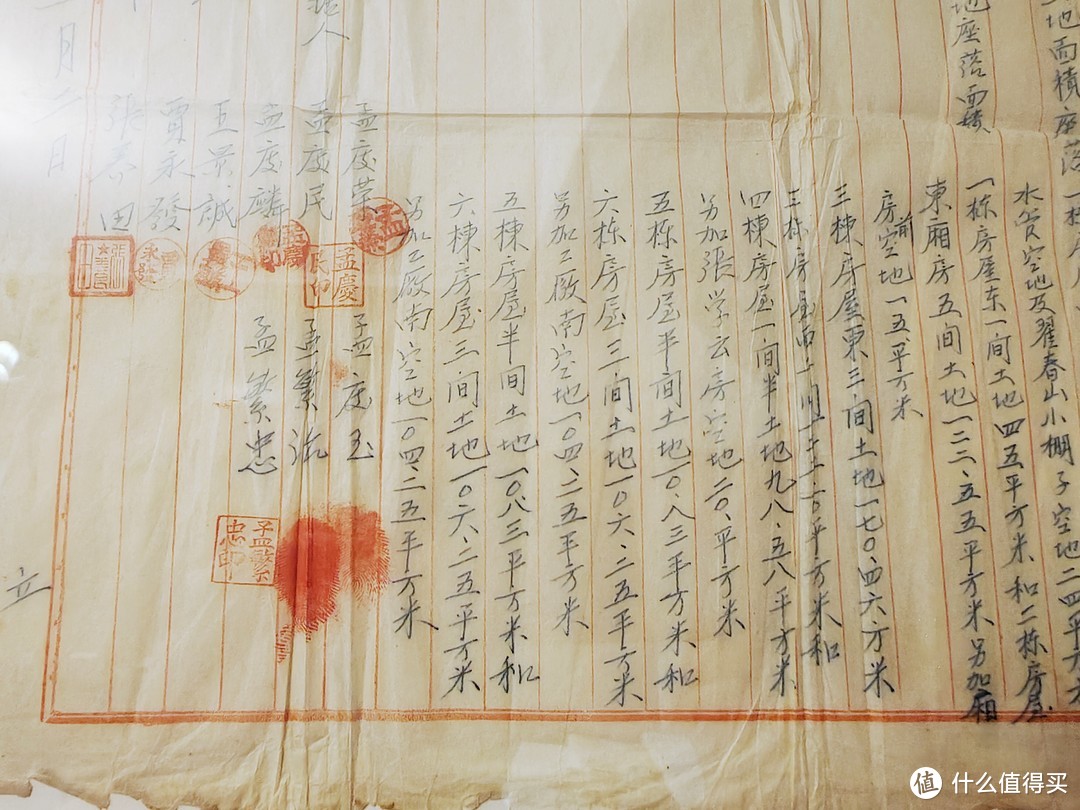 地面積座落一
水空地及翟春山小棚子空地二四平方
地座落面積
一栋房屋东一间土地四五平方米和二栋房屋
東廂房五间土地一二二、五五平方米另加廂
房前空地一五平方米
三棟房屋東三间土地一七〇、四六方米
三栋房屋西平方米和
四棟房屋一间半土地九八、五八平方米
另加張学云房空地二〇、平方米
五栋房屋半间土地一〇、八三平方米和
六栋房屋三间土地一〇六、二五平方米
另加工廠南空地一〇四、二五平方米
五棟房屋半间土地一〇、八三平方米和
六棟房屋三间土地一〇六、二五平方米
另加工廠南空地一〇四、二五平方米
人
孟庆荣
孟庆玉
孟庆民
孟繁
孟庆麟
孟繁忠
王景誠
賈永發
張春田
孟慶民印
孟繁忠印
月二日
立
值 什么值得买